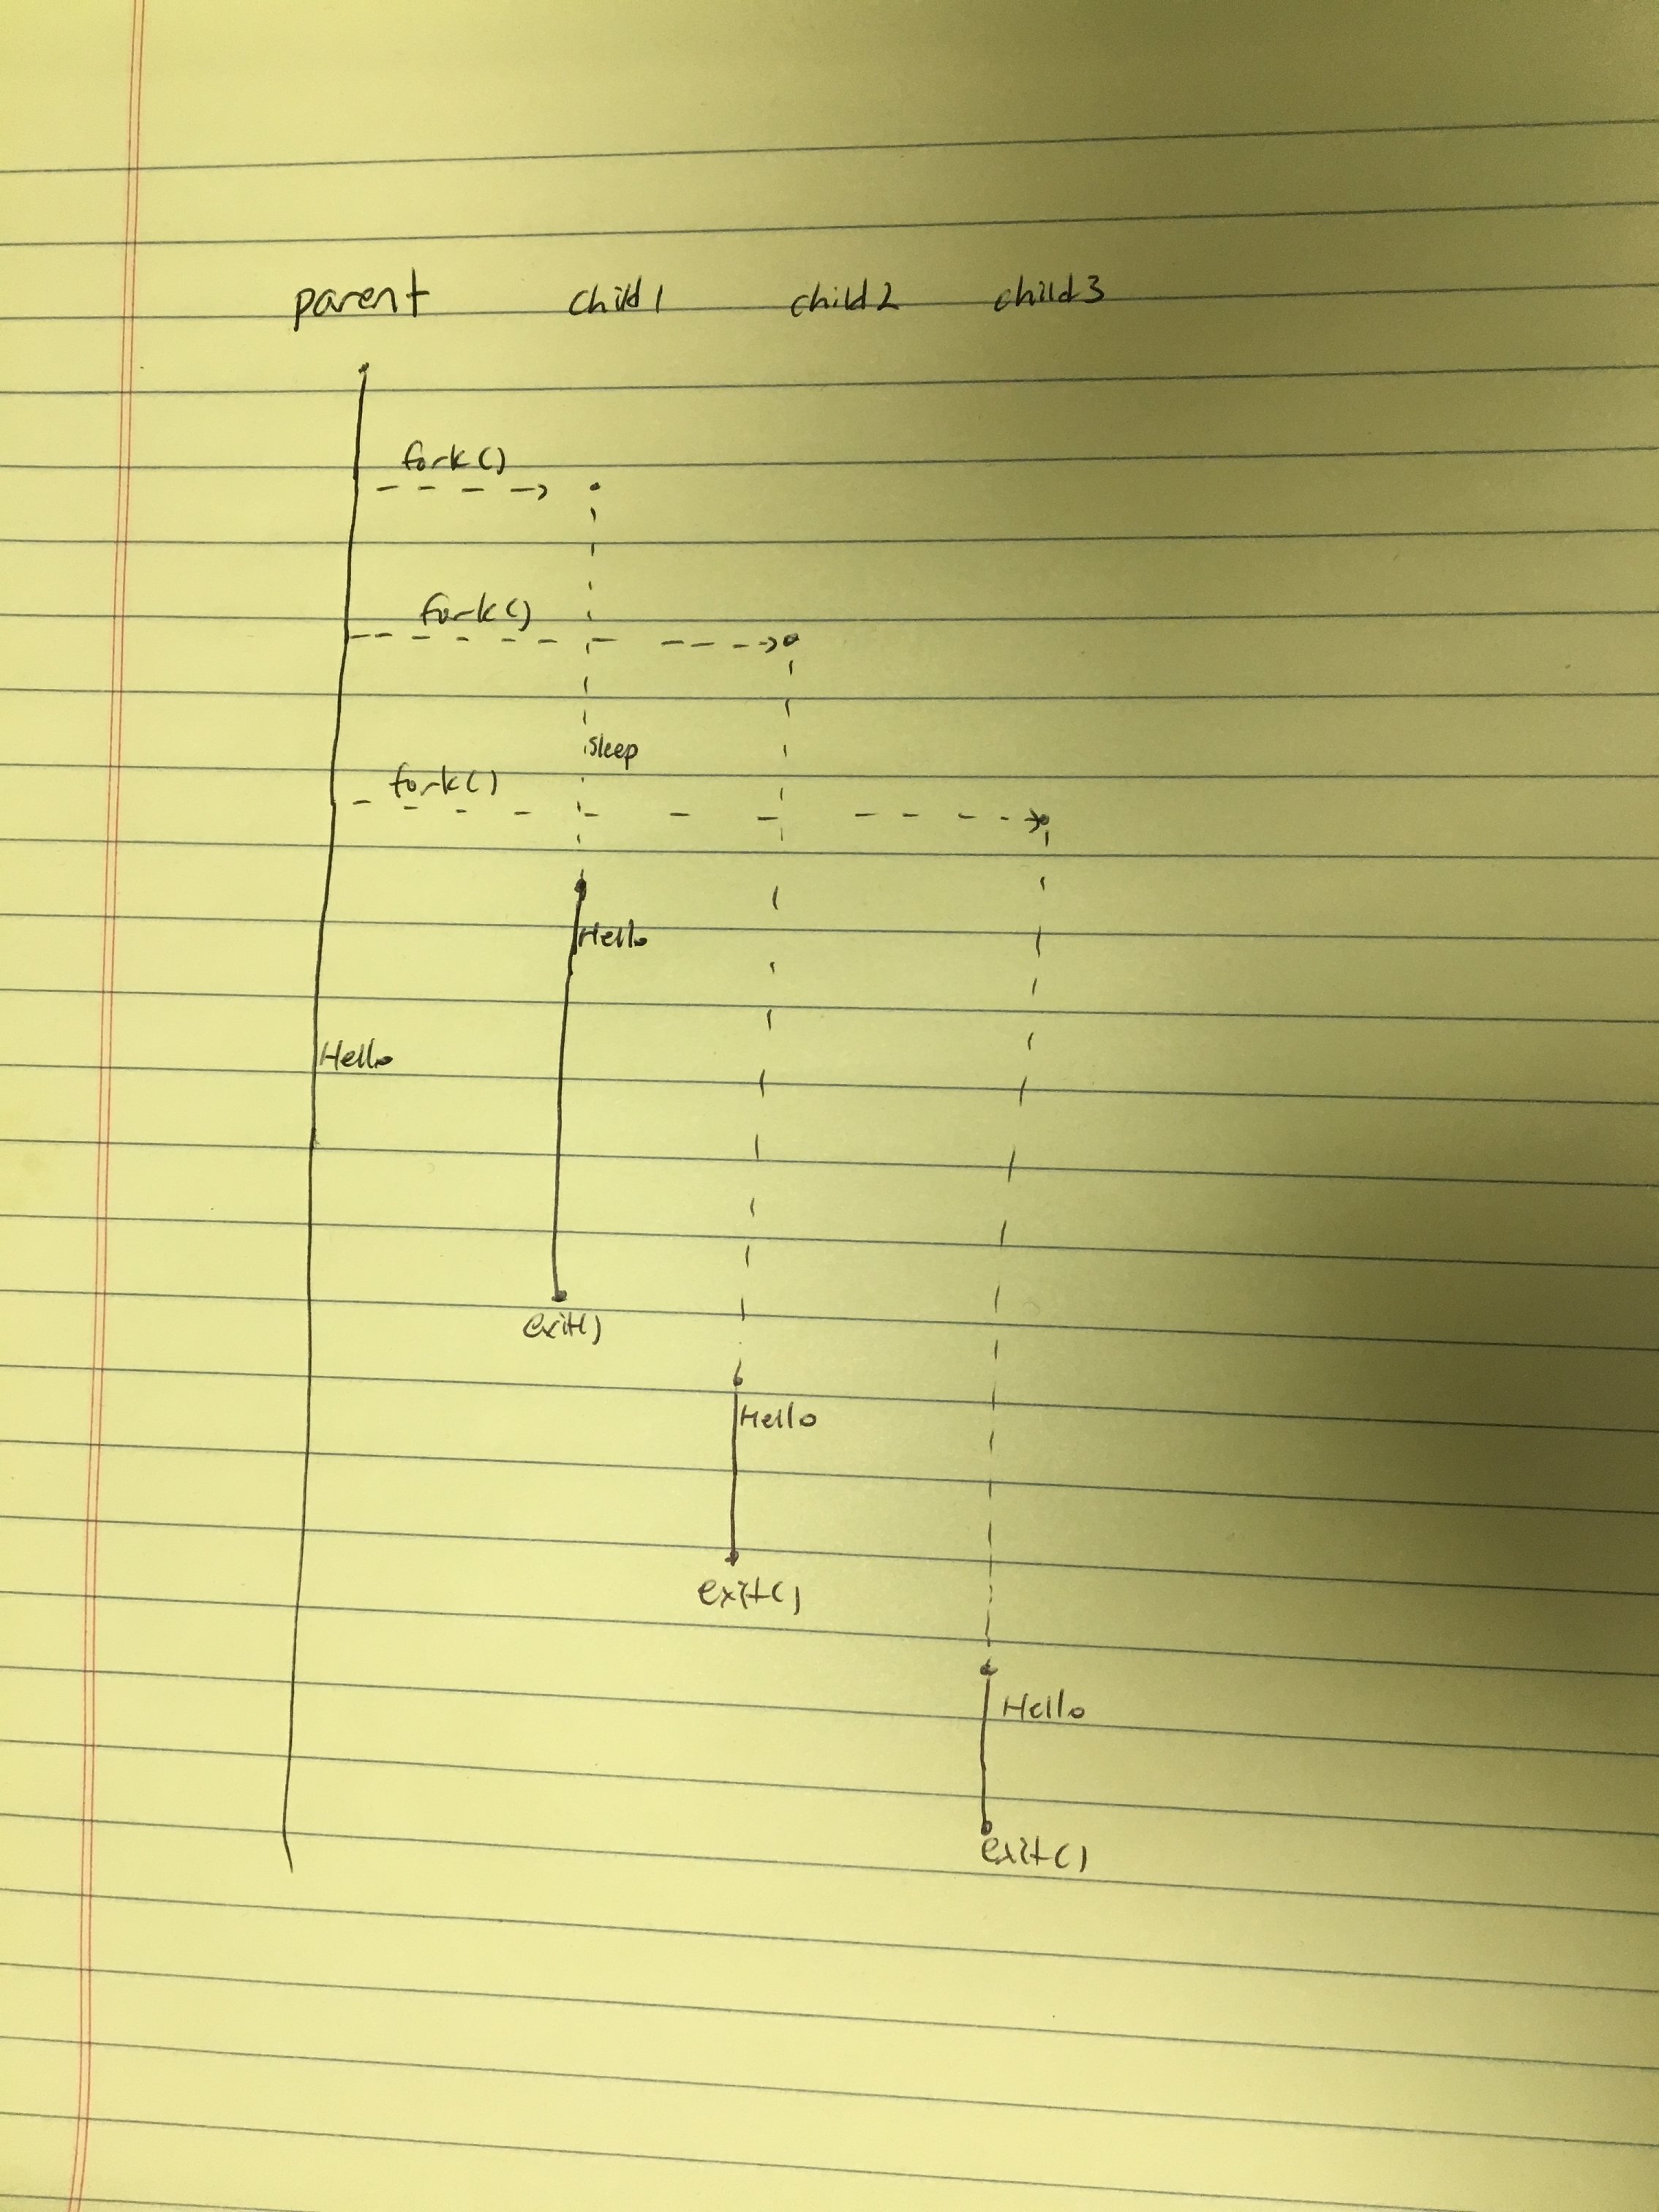 parent child1 child2 child3
fork()
fork()
sleep
fork()
Hello
Hello
exit()
Hello
exit()
Hello
exit()